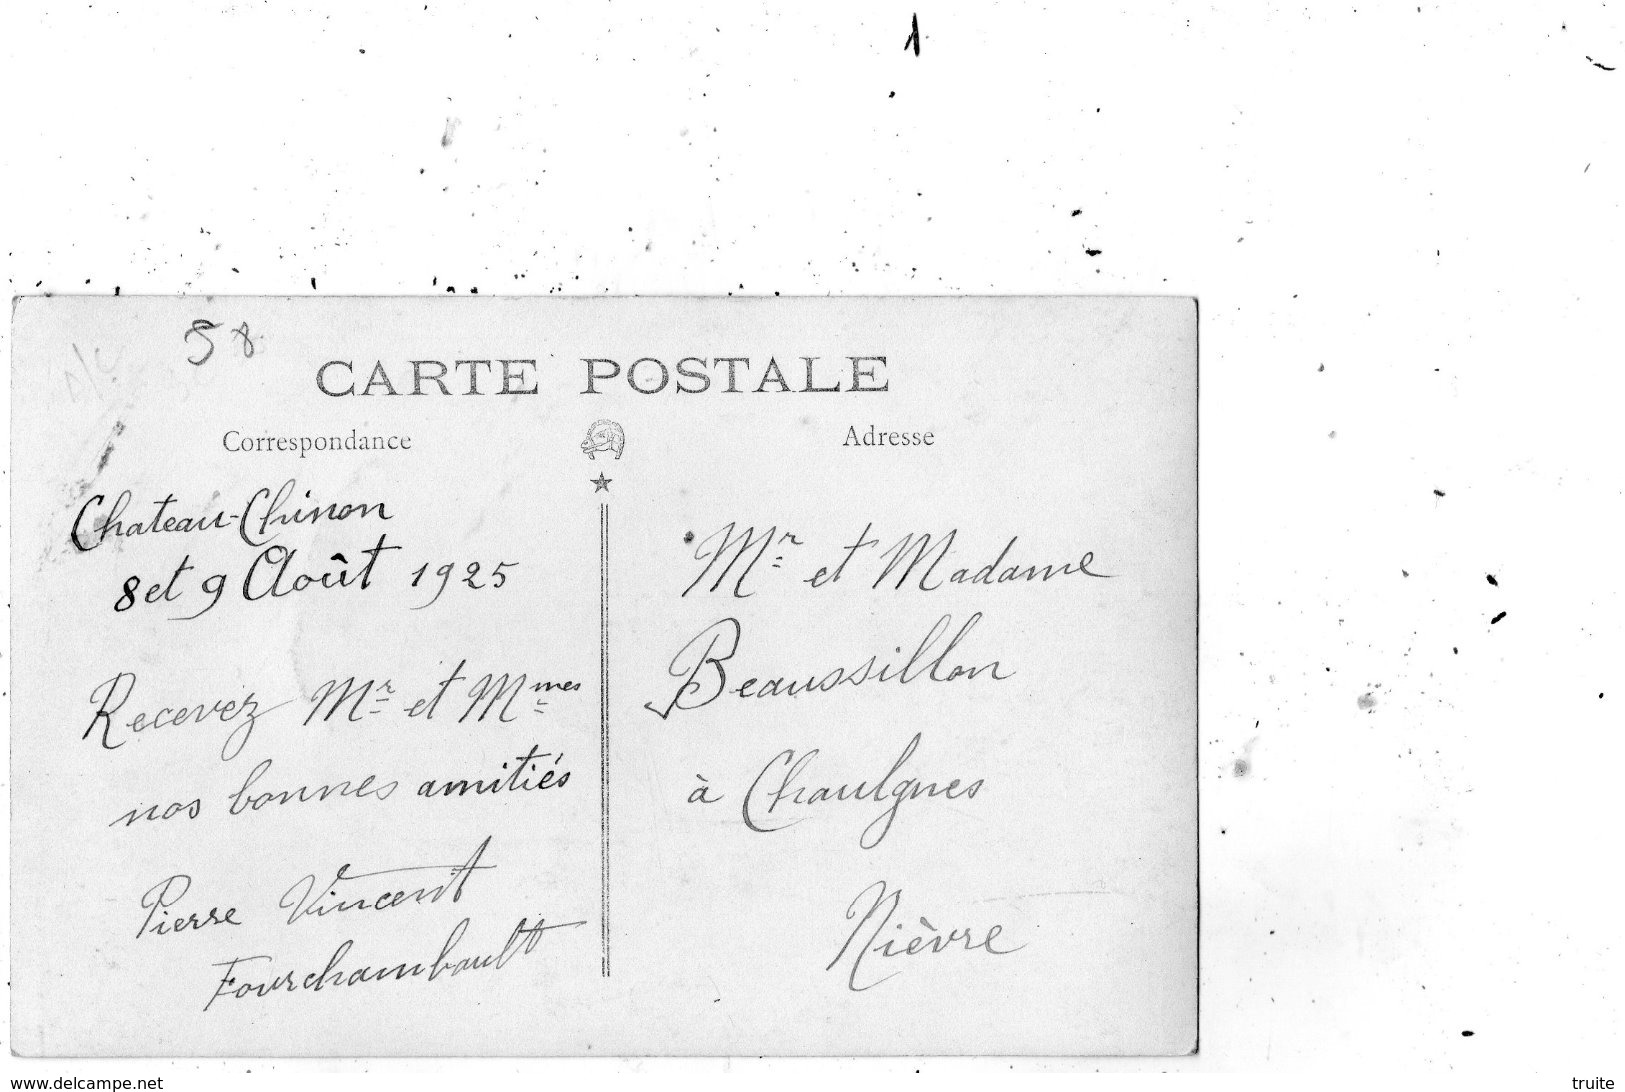 58
CARTE POSTALE
Correspondance
Adresse
Chateau-Chinon
8 et 9 Août 1925
Recevez Mr et Mmes
nos bonnes amitiés
Pierre Vincent
Fourchambault
Mr et Madame
Beaussillon
à Chaulgnes
Nièvre
www.delcampe.net
truite